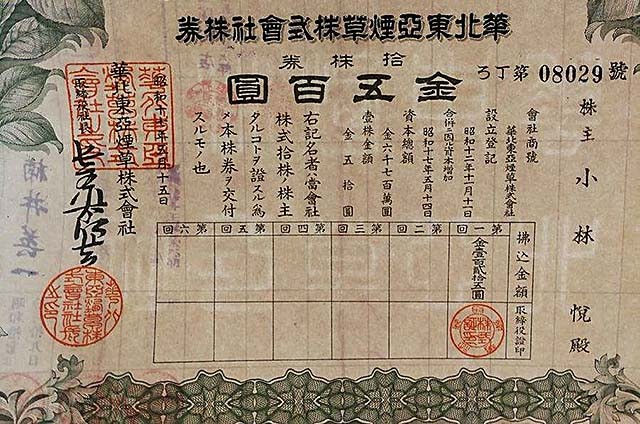 華北東亞煙草株式會社株券
拾株券
金五百圓
ろ丁第08029號
株主 小林悅殿
會社商號
華北東亞煙草株式會社
設立登記
昭和十二年十一月十一日
合併ニ因ル資本增加
昭和十七年五月十四日
資本總額
金六千七百萬圓
壹株金額
金五拾圓
右記名者ハ當會社
株式拾株ノ株主
タルコトヲ證スル爲
メ本株券ヲ交付
スルモノ也
五月十五日
華北東亞煙草株式會社
取締役社長
拂込金額
取締役證印
第一回
金壹百貳拾五圓
第二回
第三回
第四回
第五回
第六回